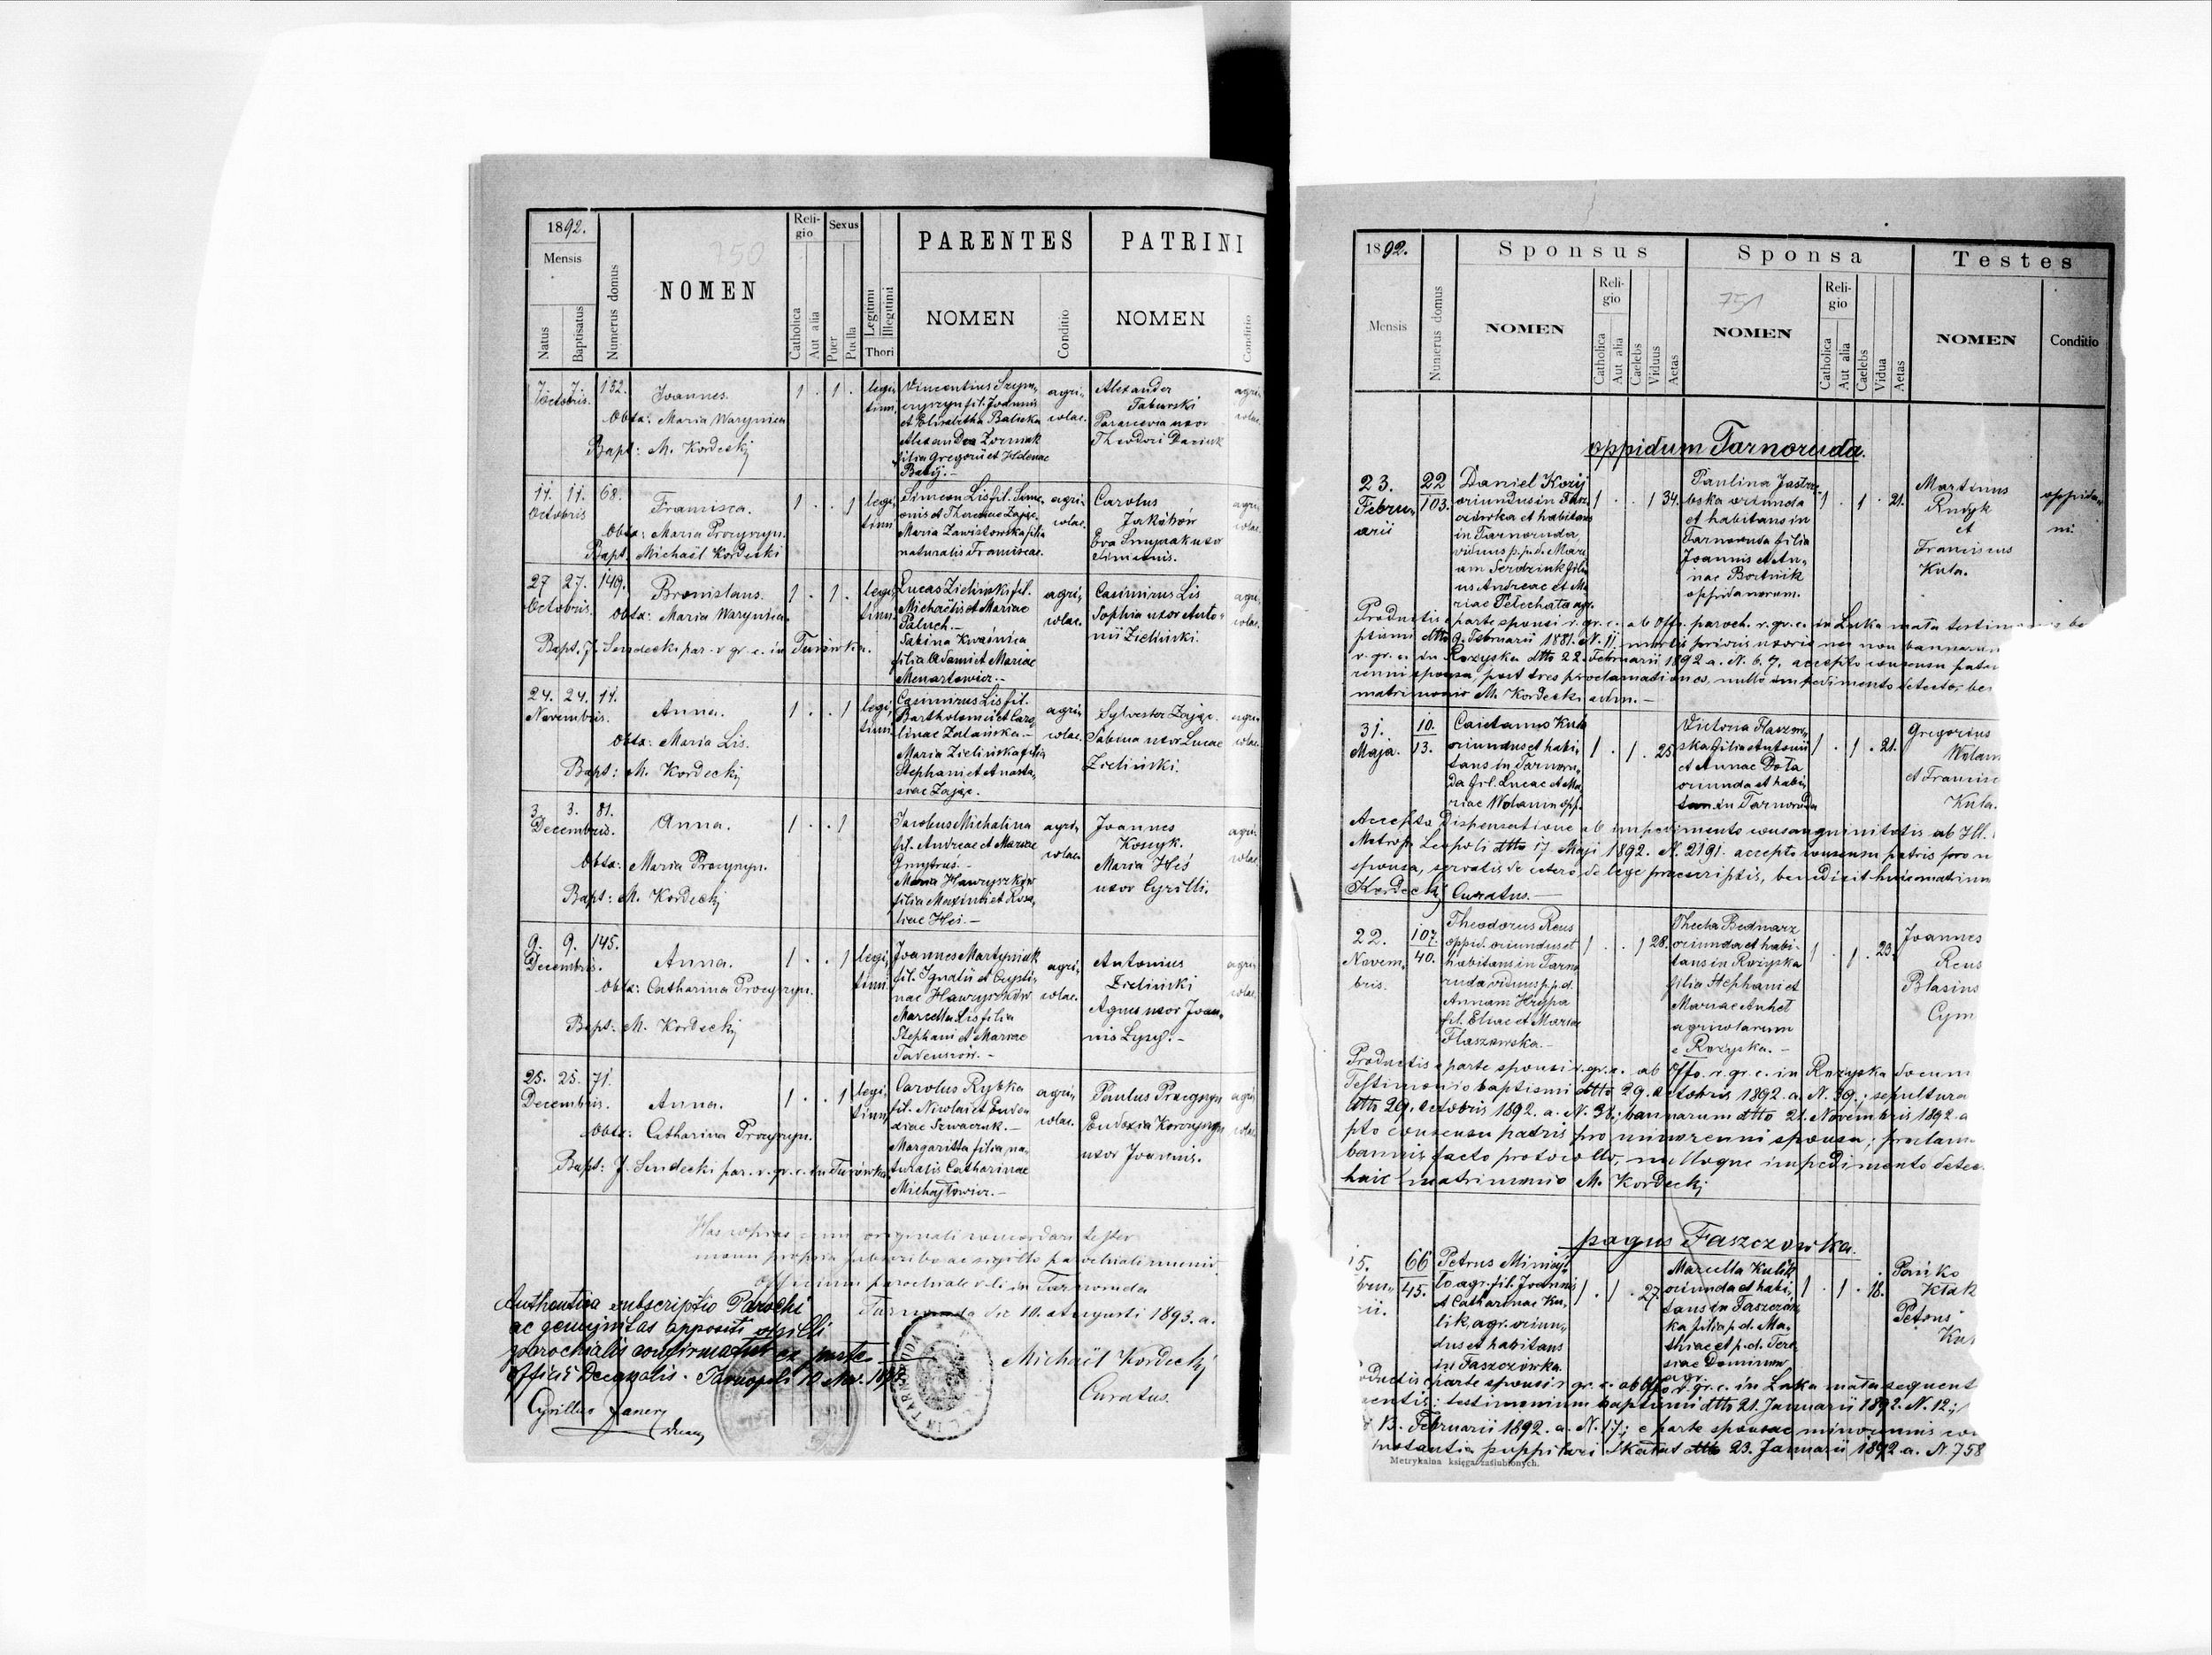 1892.
Mensis
Natus
Baptisatus
Numerus domus
750
NOMEN
Reli-
gio
Catholica
Aut alia
Sexus
Puer
Puella
Legitimi
Illegitimi
Thori
PARENTES
NOMEN
Conditio
PATRINI
NOMEN
Conditio
7. 7. 152.
Octobris.
Joannes.
Obtx: Maria Warynica
Bapt: M. Kordecky
1 . 1 .
legi-
timi
Vincentius Szym-
fil. Joannis
et Elisabetha Balicka
Alexandra
filia Gregorii et Helenae
agri-
colae.
Alexander
Taburski
Parascevia uxor
Theodori
agri-
colae.
11. 11. 68.
Octobris
Francisca.
Obtx: Maria Procyszyn.
Bapt. Michaël Kordecki
1 . . 1
legi-
timi
Simeon Lis fil. Sime-
onis et Theresiae Zając.
Maria Zawistowska filia
naturalis Franciscae.
agri-
colae.
Carolus
Jakubów
Eva uxor
Simeonis.
agri-
colae.
27 27. 149.
Octobris.
Bronislaus.
Obtx: Maria Warynica.
Bapt. J. Sendecki par. r. gr. c. in Turówka.
1 . 1 .
legi-
timi
Lucas Zieliński fil.
Michaëlis et Mariae
Paluch.—
Sabina Kwaśnica
filia Adami et Mariae
agri-
colae.
Casimirus Lis
Sophia uxor Anto-
nii Zieliński.
agri-
colae.
24. 24. 11.
Novembris.
Anna.
Obtx: Maria Lis.
Bapt: M. Kordecky
1 . . 1
legi-
timi
Casimirus Lis fil.
Bartholomei et Caro-
linae
Maria Zielińska filia
Stephani et Anasta-
siae Zając.
agri-
colae.
Sylvester Zając.
Sabina uxor Lucae
Zieliński.
agri-
colae.
3. 3. 81.
Decembris.
Anna.
Obtx: Maria Procyszyn.
Bapt: M. Kordecky
1 . . 1
Jacobus Michalina
fil. Andreae et Mariae
Maria Hawryszków
filia Maximi et Rosa-
liae Heś.—
agri-
colae.
Joannes
Maria Heś
uxor Cyrilli.
agri-
colae.
9. 9. 145.
Decembris.
Anna.
Obtx: Catharina Procyszyn.
Bapt: M. Kordecky
1 . . 1
legi-
timi
Joannes Martyniak
fil. Ignatii et Crysti-
nae Hawryszków
Marcella Lis filia
Stephani et Mariae
agri-
colae.
Antonius
Zieliński
Agnes uxor Joan-
nis
agri-
colae.
25. 25. 71.
Decembris.
Anna.
Obtx: Catharina Procyszyn.
Bapt: J. Sendecki par. r. gr. c. in Turówka.
1 . . 1
legi-
timi
Carolus Rybka
fil. Nicolai et Eudo-
xiae Szwaczuk.—
Margaritta filia na-
turalis Catharinae
Michajłowicz.—
agri-
colae.
Paulus Procyszyn
Eudoxia
uxor Joannis.
agri-
colae.
Has copias cum originali concordari testor
manu propria subscribo ac sigillo parochiali munio
Officium parochiale r. l. in Tarnoruda
Tarnoruda die 10. Augusti 1893. a.
Michaël Kordecky
Curatus.
Authentica subscriptio Parochi
ac genuinitas appositi sigilli
parochialis confirmatur ex parte
Officii Decanalis. Tarnopoli 10
Cyrillus
1892.
Mensis
Numerus domus
Sponsus
NOMEN
Reli-
gio
Catholica
Aut alia
Caelebs
Viduus
Aetas
Sponsa
751
NOMEN
Reli-
gio
Catholica
Aut alia
Caelebs
Vidua
Aetas
Testes
NOMEN
Conditio
oppidum Tarnoruda.
23.
Febru-
arii
22
103.
Daniel Kozij
oriundus in Fasz-
czówka et habitans
in Tarnoruda,
viduus p. p. d. Mari-
am fili-
us Andreae et Ma-
riae Pelechata agr.
1 . . 1 34.
Paulina Jastrzę-
bska oriunda
et habitans in
Tarnoruda filia
Joannis et An-
nae Bortnik
oppidanorum.
1 . 1 . 21.
Martinus
Rudyk
et
Franciscus
Kula.
oppida-
ni.
Productis e parte sponsi r. gr. c. ab Offo. paroch. r. gr. c. in Łuka mała
ptismi dtto 9. Februarii 1881. N. 11; mortis prioris uxoris nec non bannorum
r. gr. c. in Rożyska dtto 22. Februarii 1892 a. N. 6. 7, accepto consensu patris
renni sponsa, post tres proclamationes, nullo impedimento detecto
matrimonio M. Kordecki adm.—
31.
Maja.
10.
13.
Caietanus Kula
oriundus et habi-
tans in Tarnoru-
da fil. Lucae et Ma-
riae Wolanin opp.
1 . 1 . 25
Victoria Flaszow-
ska filia Antonii
et Annae Dola
oriunda et habi-
tans in Tarnoruda
1 . 1 . 21.
Gregorius
Wolan
et Francisc
Kula.
Accepta Dispensatione ab impedimento consanguinitatis ab Ill.
Metrop. Leopoli dtto 17. Maji 1892. N. 2191. accepto consensu patris pro
sponsa, servatis de cetero de lege praescriptis, benedixit huic matrim
Kordecky Curatus.—
22.
Novem-
bris.
107.
40.
Theodorus Reus
oppid. oriundus et
habitans in Tarno-
ruda viduus p. p. d.
Annam Hrypa
fil. Eliae et Mariae
Flaszowska.—
1 . . 1 28.
Thecla Bednarz
oriunda et habi-
tans in Rożyska
filia Stephani et
Mariae Anhel
agricolarum
e Rożyska.—
1 . 1 . 23.
Joannes
Reus
Blasius
Cym
Productis e parte sponsi r. gr. c. ab Offo. r. gr. c. in Rożyska docum
Testimonio baptismi dtto 29. Octobris 1892. a. N. 39.; sepultura
dtto 29. Octobris 1892. a. N. 38; bannorum dtto 21. Novembris 1892. a
pto consensu patris pro minorenni sponsa; proclam
bannis, facto protocollo, nulloque impedimento detec
huic matrimonio M. Kordecky
pagus Faszczówka.
15.
bru-
rii.
66
45.
Petrus
agr. fil. Joannis
et Catharinae Ku-
lik, agr. oriun-
dus et habitans
in Faszczówka.
1 . 1 . 27.
Marcella Kulik
oriunda et habi-
tans in Faszczów-
ka filia p. d. Ma-
thiae et p. d. Tere-
siae
agr.
1 . 1 . 18.
Petrus
Productis e parte sponsi r. gr. c. ab Offo. r. gr. c. in Łuka mała sequent
mentis: testimonium baptismi dtto 21. Januarii 1892. N. 12;
13. Februarii 1892. a. N. 17; e parte sponsae minorennis con
instantia puppilari Skałat dtto 23. Januarii 1892. a. N. 758
Metrykalna księga zaślubionych.